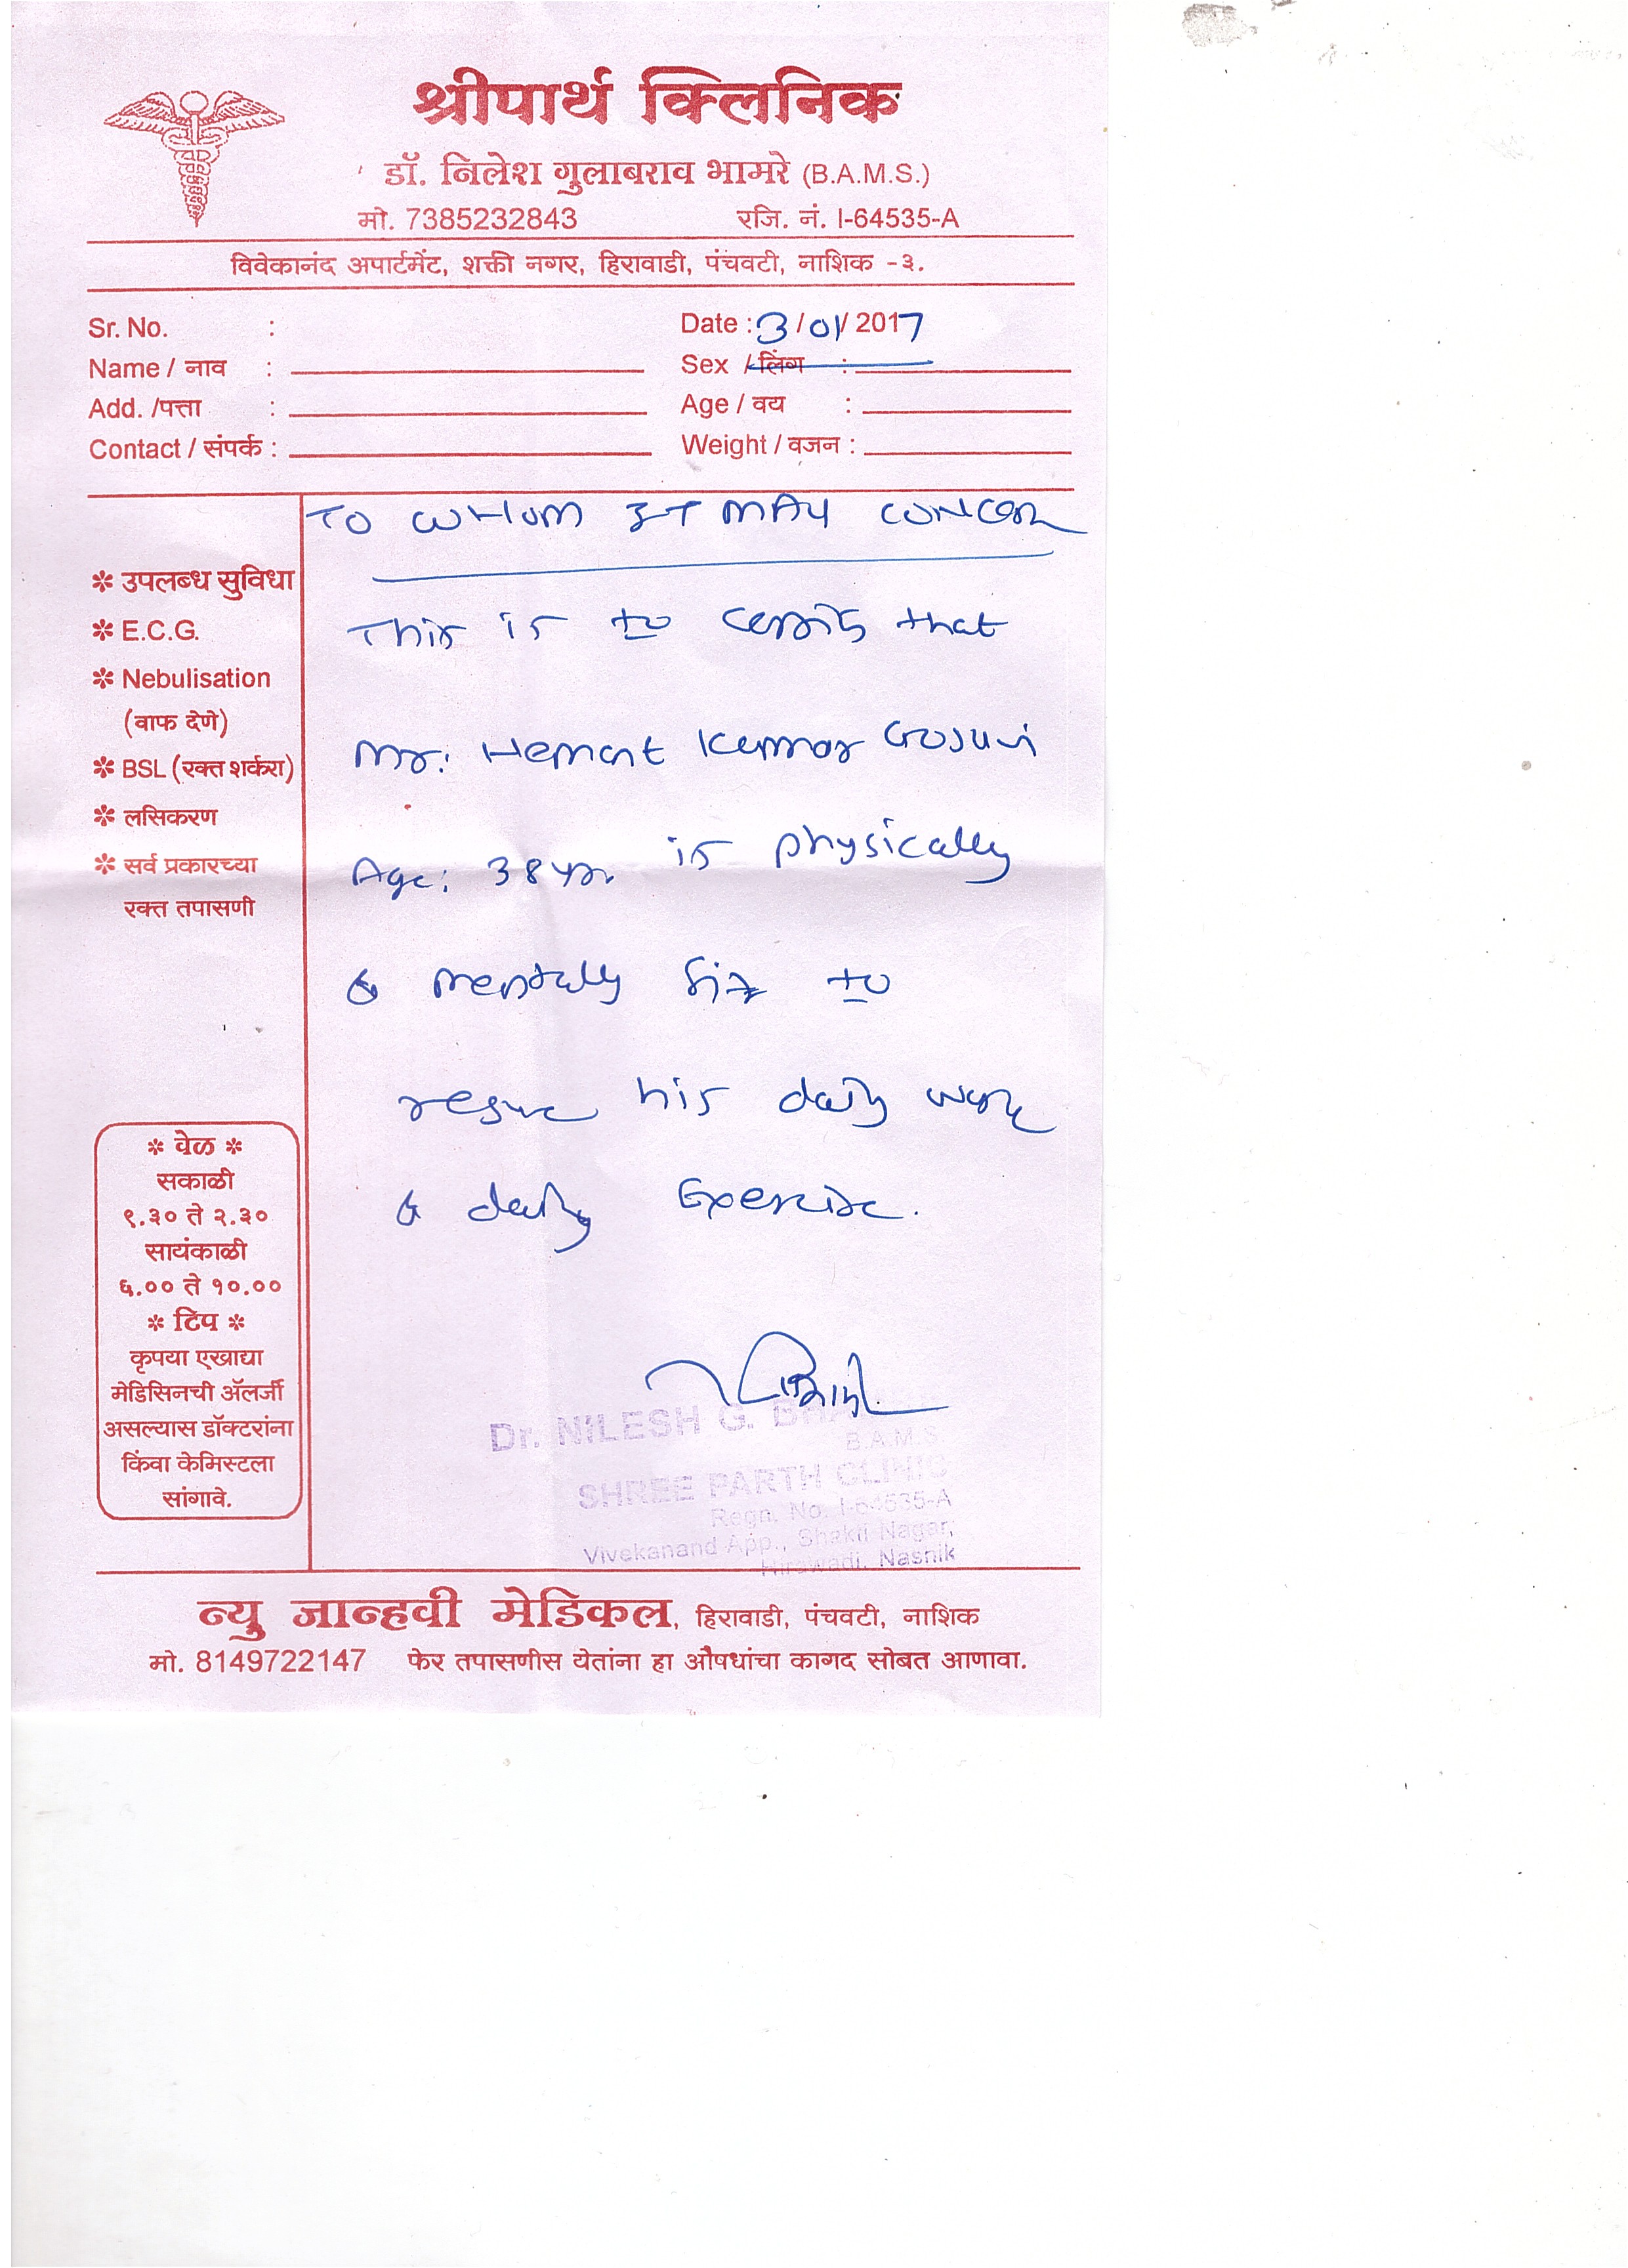 श्रीपार्थ क्लिनिक
डॉ. निलेश गुलाबराव भामरे (B.A.M.S.)
मो. 7385232843 रजि. नं. I-64535-A
विवेकानंद अपार्टमेंट, शक्ती नगर, हिरावाडी, पंचवटी, नाशिक -३.
Sr. No. : Date : 3/01/2017
Name / नाव : Sex / लिंग :
Add. /पत्ता : Age / वय :
Contact / संपर्क : Weight / वजन :
TO WHOM IT MAY CONCERN
This is to certify that
Mr. Hemant Kumar Gosavi
Age: 38 yr. is physically
& mentally fit to
his daily work
& daily Exercise.
* उपलब्ध सुविधा
* E.C.G.
* Nebulisation
(वाफ देणे)
* BSL (रक्त शर्करा)
* लसिकरण
* सर्व प्रकारच्या
रक्त तपासणी
* वेळ *
सकाळी
९.३० ते २.३०
सायंकाळी
६.०० ते १०.००
* टिप *
कृपया एखाद्या
मेडिसिनची ॲलर्जी
असल्यास डॉक्टरांना
किंवा केमिस्टला
सांगावे.
Dr. NILESH G.
B.A.M.S.
SHREE PARTH CLINIC
Regn. No. I-64535-A
Vivekanand App., Shakti Nagar,
Hirawadi, Nashik
न्यु जान्हवी मेडिकल, हिरावाडी, पंचवटी, नाशिक
मो. 8149722147 फेर तपासणीस येतांना हा औषधांचा कागद सोबत आणावा.